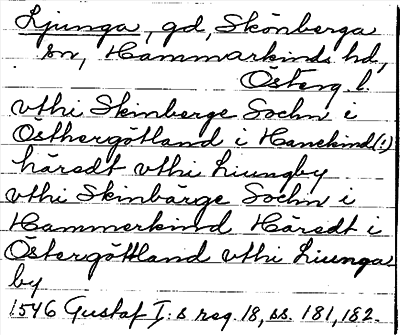 Ljunga, gd, Skönberga
sn, Hammarkinds hd,
Österg. l.
vthi Skinberge Sochn i
Östhergötland i Hanekind(!)
häredt vthi Liungby
vthi Skinbärge Sochn i
Hammerkind Häredt i
Östergöttland vthi Liunga
by
1546 Gustaf I:s reg. 18, ss. 181, 182.